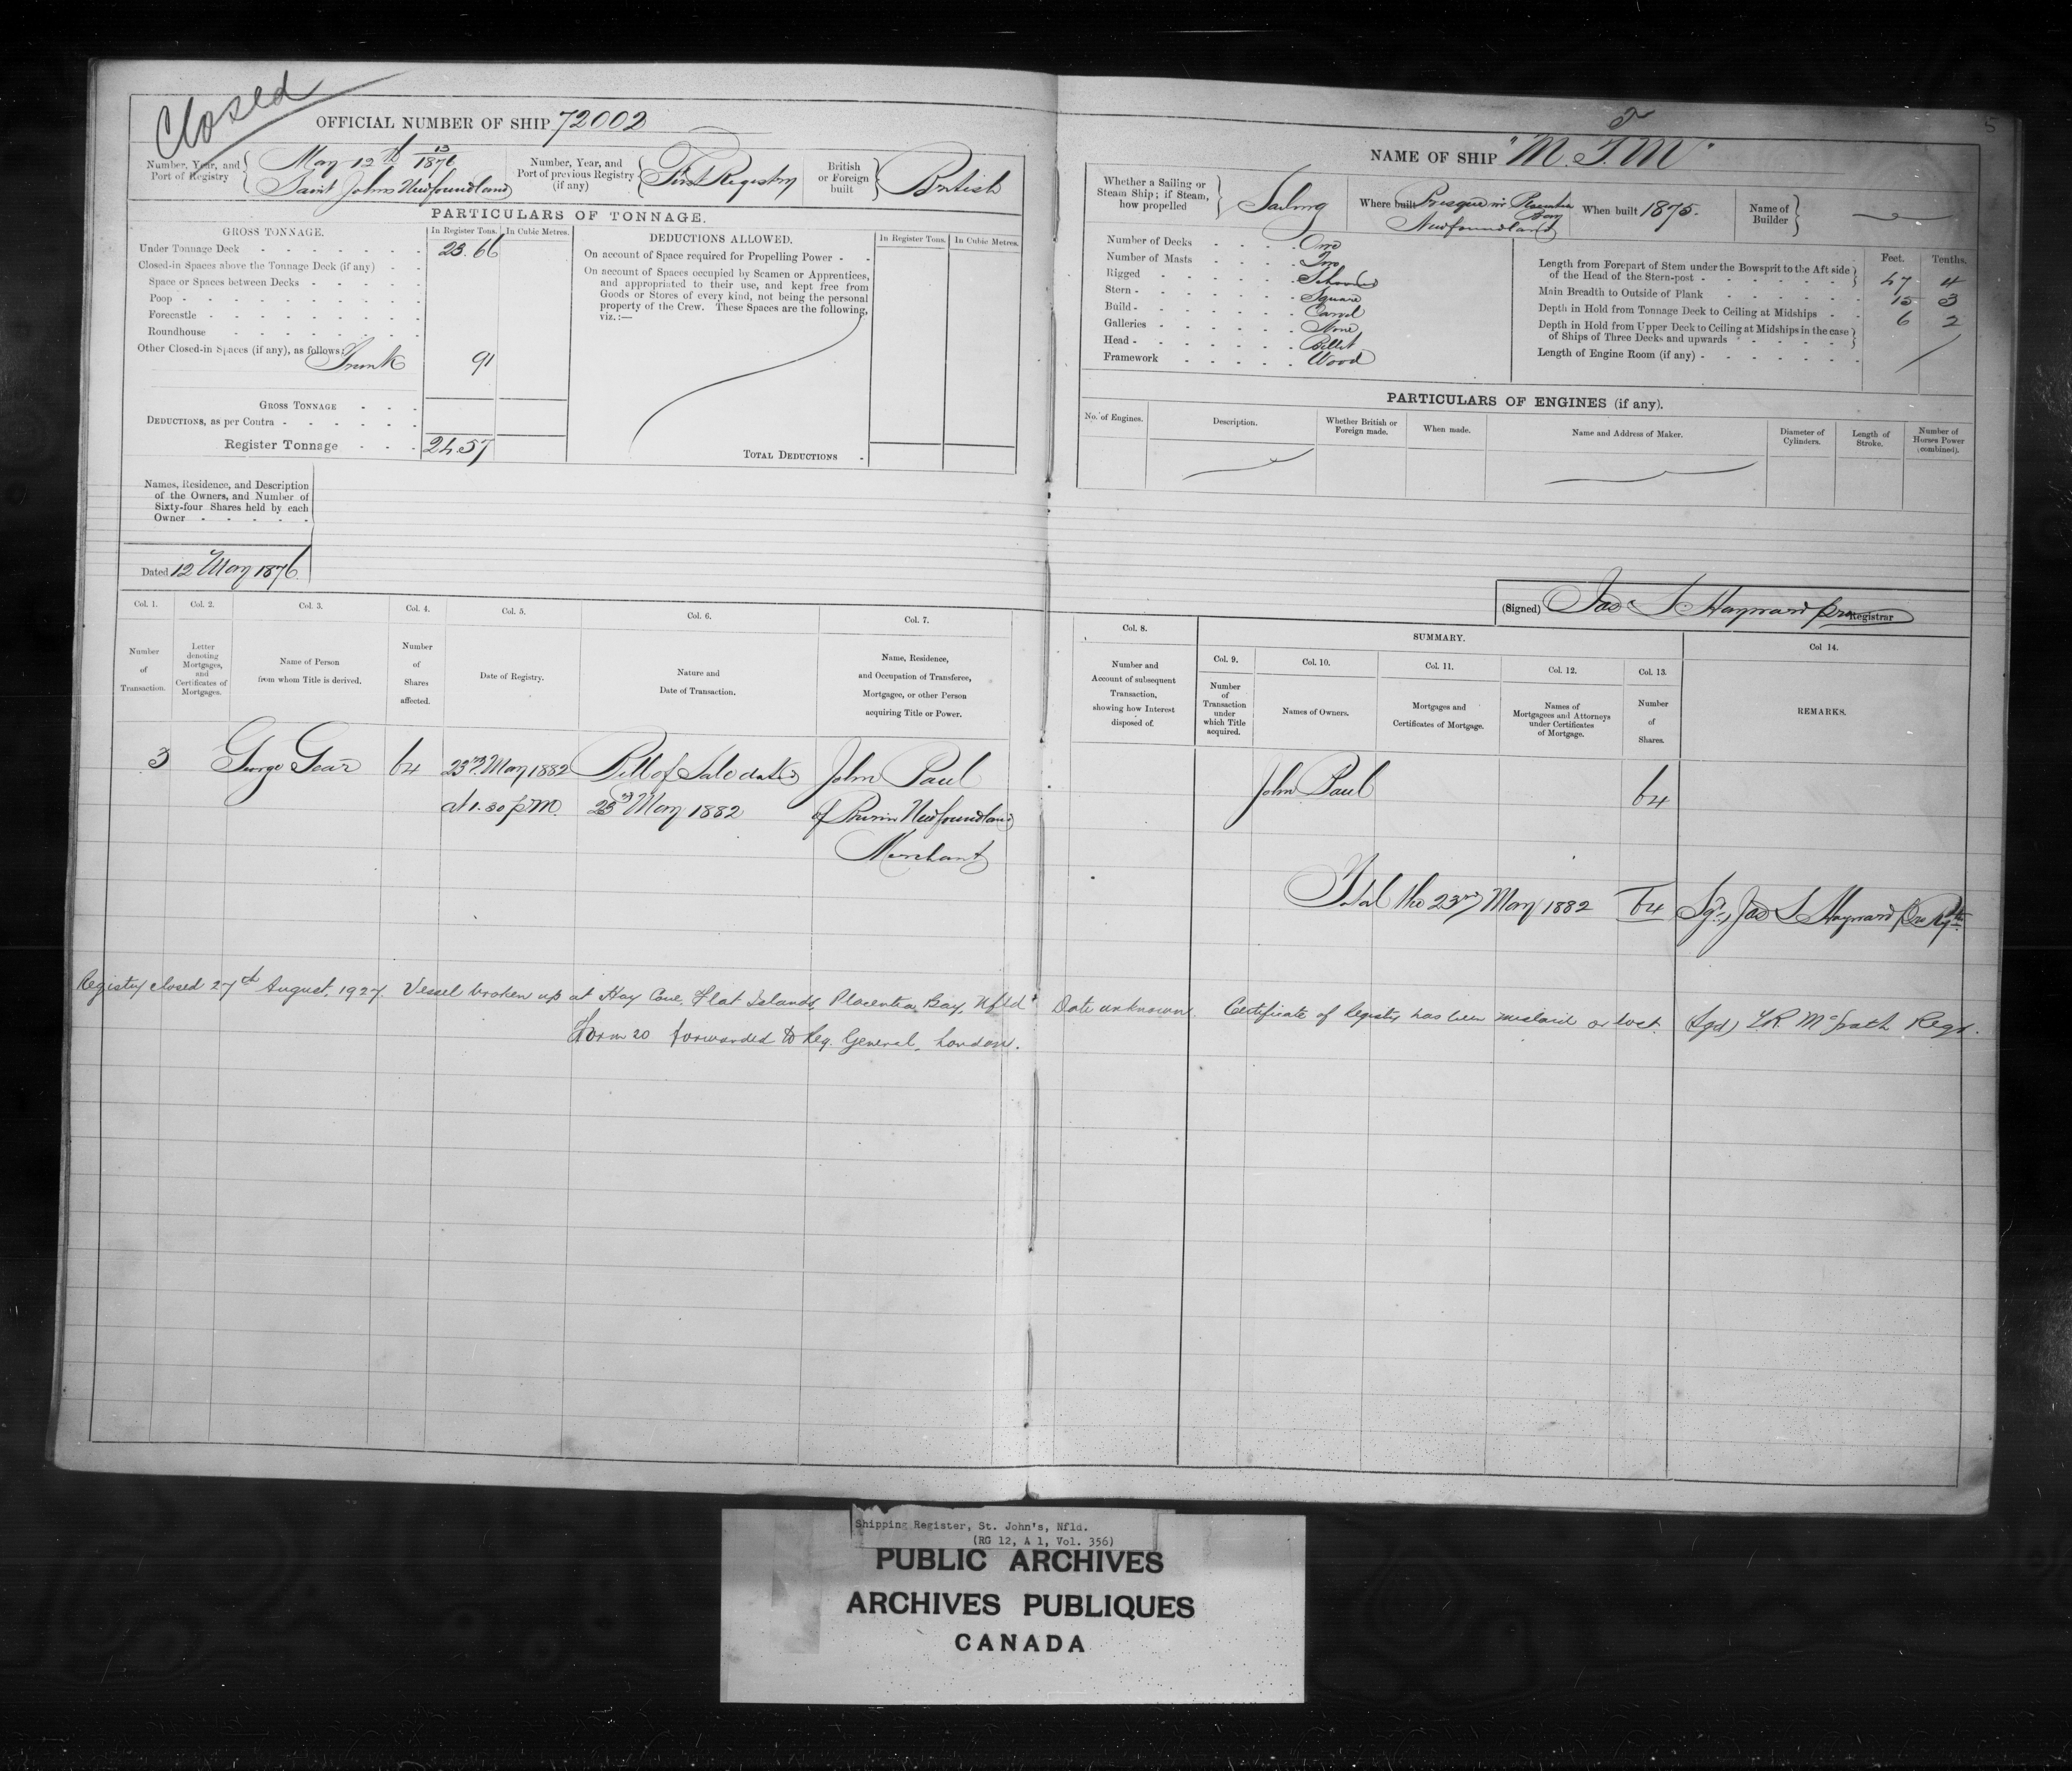 Closed
OFFICIAL NUMBER OF SHIP 72002
Number, Year, and Port of Registry
13
May 12th 1876
Saint Johns Newfoundland
Number, Year, and Port of previous Registry (if any)
First Registry
British or Foreign built
British
PARTICULARS OF TONNAGE.
GROSS TONNAGE. In Register Tons. In Cubic Metres.
Under Tonnage Deck 23.66
Closed-in Spaces above the Tonnage Deck (if any)
Space or Spaces between Decks
Poop
Forecastle
Roundhouse
Other Closed-in Spaces (if any), as follows:
Trunk 91
GROSS TONNAGE
DEDUCTIONS, as per Contra
Register Tonnage 24.57
DEDUCTIONS ALLOWED. In Register Tons. In Cubic Metres.
On account of Space required for Propelling Power
On account of Spaces occupied by Seamen or Apprentices,
and appropriated to their use, and kept free from
Goods or Stores of every kind, not being the personal
property of the Crew. These Spaces are the following,
viz.:—
TOTAL DEDUCTIONS
Names, Residence, and Description
of the Owners, and Number of
Sixty-four Shares held by each
Owner
Dated 12 May 1876
5
T
NAME OF SHIP "M.T.M"
Whether a Sailing or Steam Ship; if Steam, how propelled
Sailing
Where built Presque in Placentia Bay
Newfoundland
When built 1875.
Name of Builder
Number of Decks One
Number of Masts Two
Rigged Schooner
Stern Square
Build Carvel
Galleries None
Head Billet
Framework Wood
Feet. Tenths.
Length from Forepart of Stem under the Bowsprit to the Aft side
of the Head of the Stern-post 47 4
Main Breadth to Outside of Plank 15 3
Depth in Hold from Tonnage Deck to Ceiling at Midships 6 2
Depth in Hold from Upper Deck to Ceiling at Midships in the case
of Ships of Three Decks and upwards
Length of Engine Room (if any)
PARTICULARS OF ENGINES (if any).
No. of Engines. Description. Whether British or Foreign made. When made. Name and Address of Maker. Diameter of Cylinders. Length of Stroke. Number of Horses Power (combined).
(Signed) Jas S Hayward pro Registrar
Col. 1. Col. 2. Col. 3. Col. 4. Col. 5. Col. 6. Col. 7.
Number of Transaction.
Letter denoting Mortgages, and Certificates of Mortgages.
Name of Person from whom Title is derived.
Number of Shares affected.
Date of Registry.
Nature and Date of Transaction.
Name, Residence, and Occupation of Transferee, Mortgagee, or other Person acquiring Title or Power.
Col. 8.
Number and Account of subsequent Transaction, showing how Interest disposed of.
SUMMARY.
Col. 9. Col. 10. Col. 11. Col. 12. Col. 13. Col 14.
Number of Transaction under which Title acquired.
Names of Owners.
Mortgages and Certificates of Mortgage.
Names of Mortgagees and Attorneys under Certificates of Mortgage.
Number of Shares.
REMARKS.
3 George Gear 64 23rd May 1882 Bill of Sale dated John Paul
at 1.30 p.m. 23rd May 1882 of Burin Newfoundland
Merchant
John Paul 64
Total the 23rd May 1882 64 Sgd, Jas S Hayward pro Rgtr
Registry closed 27th August, 1927. Vessel broken up at Hay Cove, Flat Islands, Placentia Bay, Nfld. Date unknown. Certificate of Registry has been mislaid or lost. (Sgd) McGrath Regr.
Form 20 forwarded to Reg. General, London.
Shipping Register, St. John's, Nfld.
(RG 12, A 1, Vol. 356)
PUBLIC ARCHIVES
ARCHIVES PUBLIQUES
CANADA